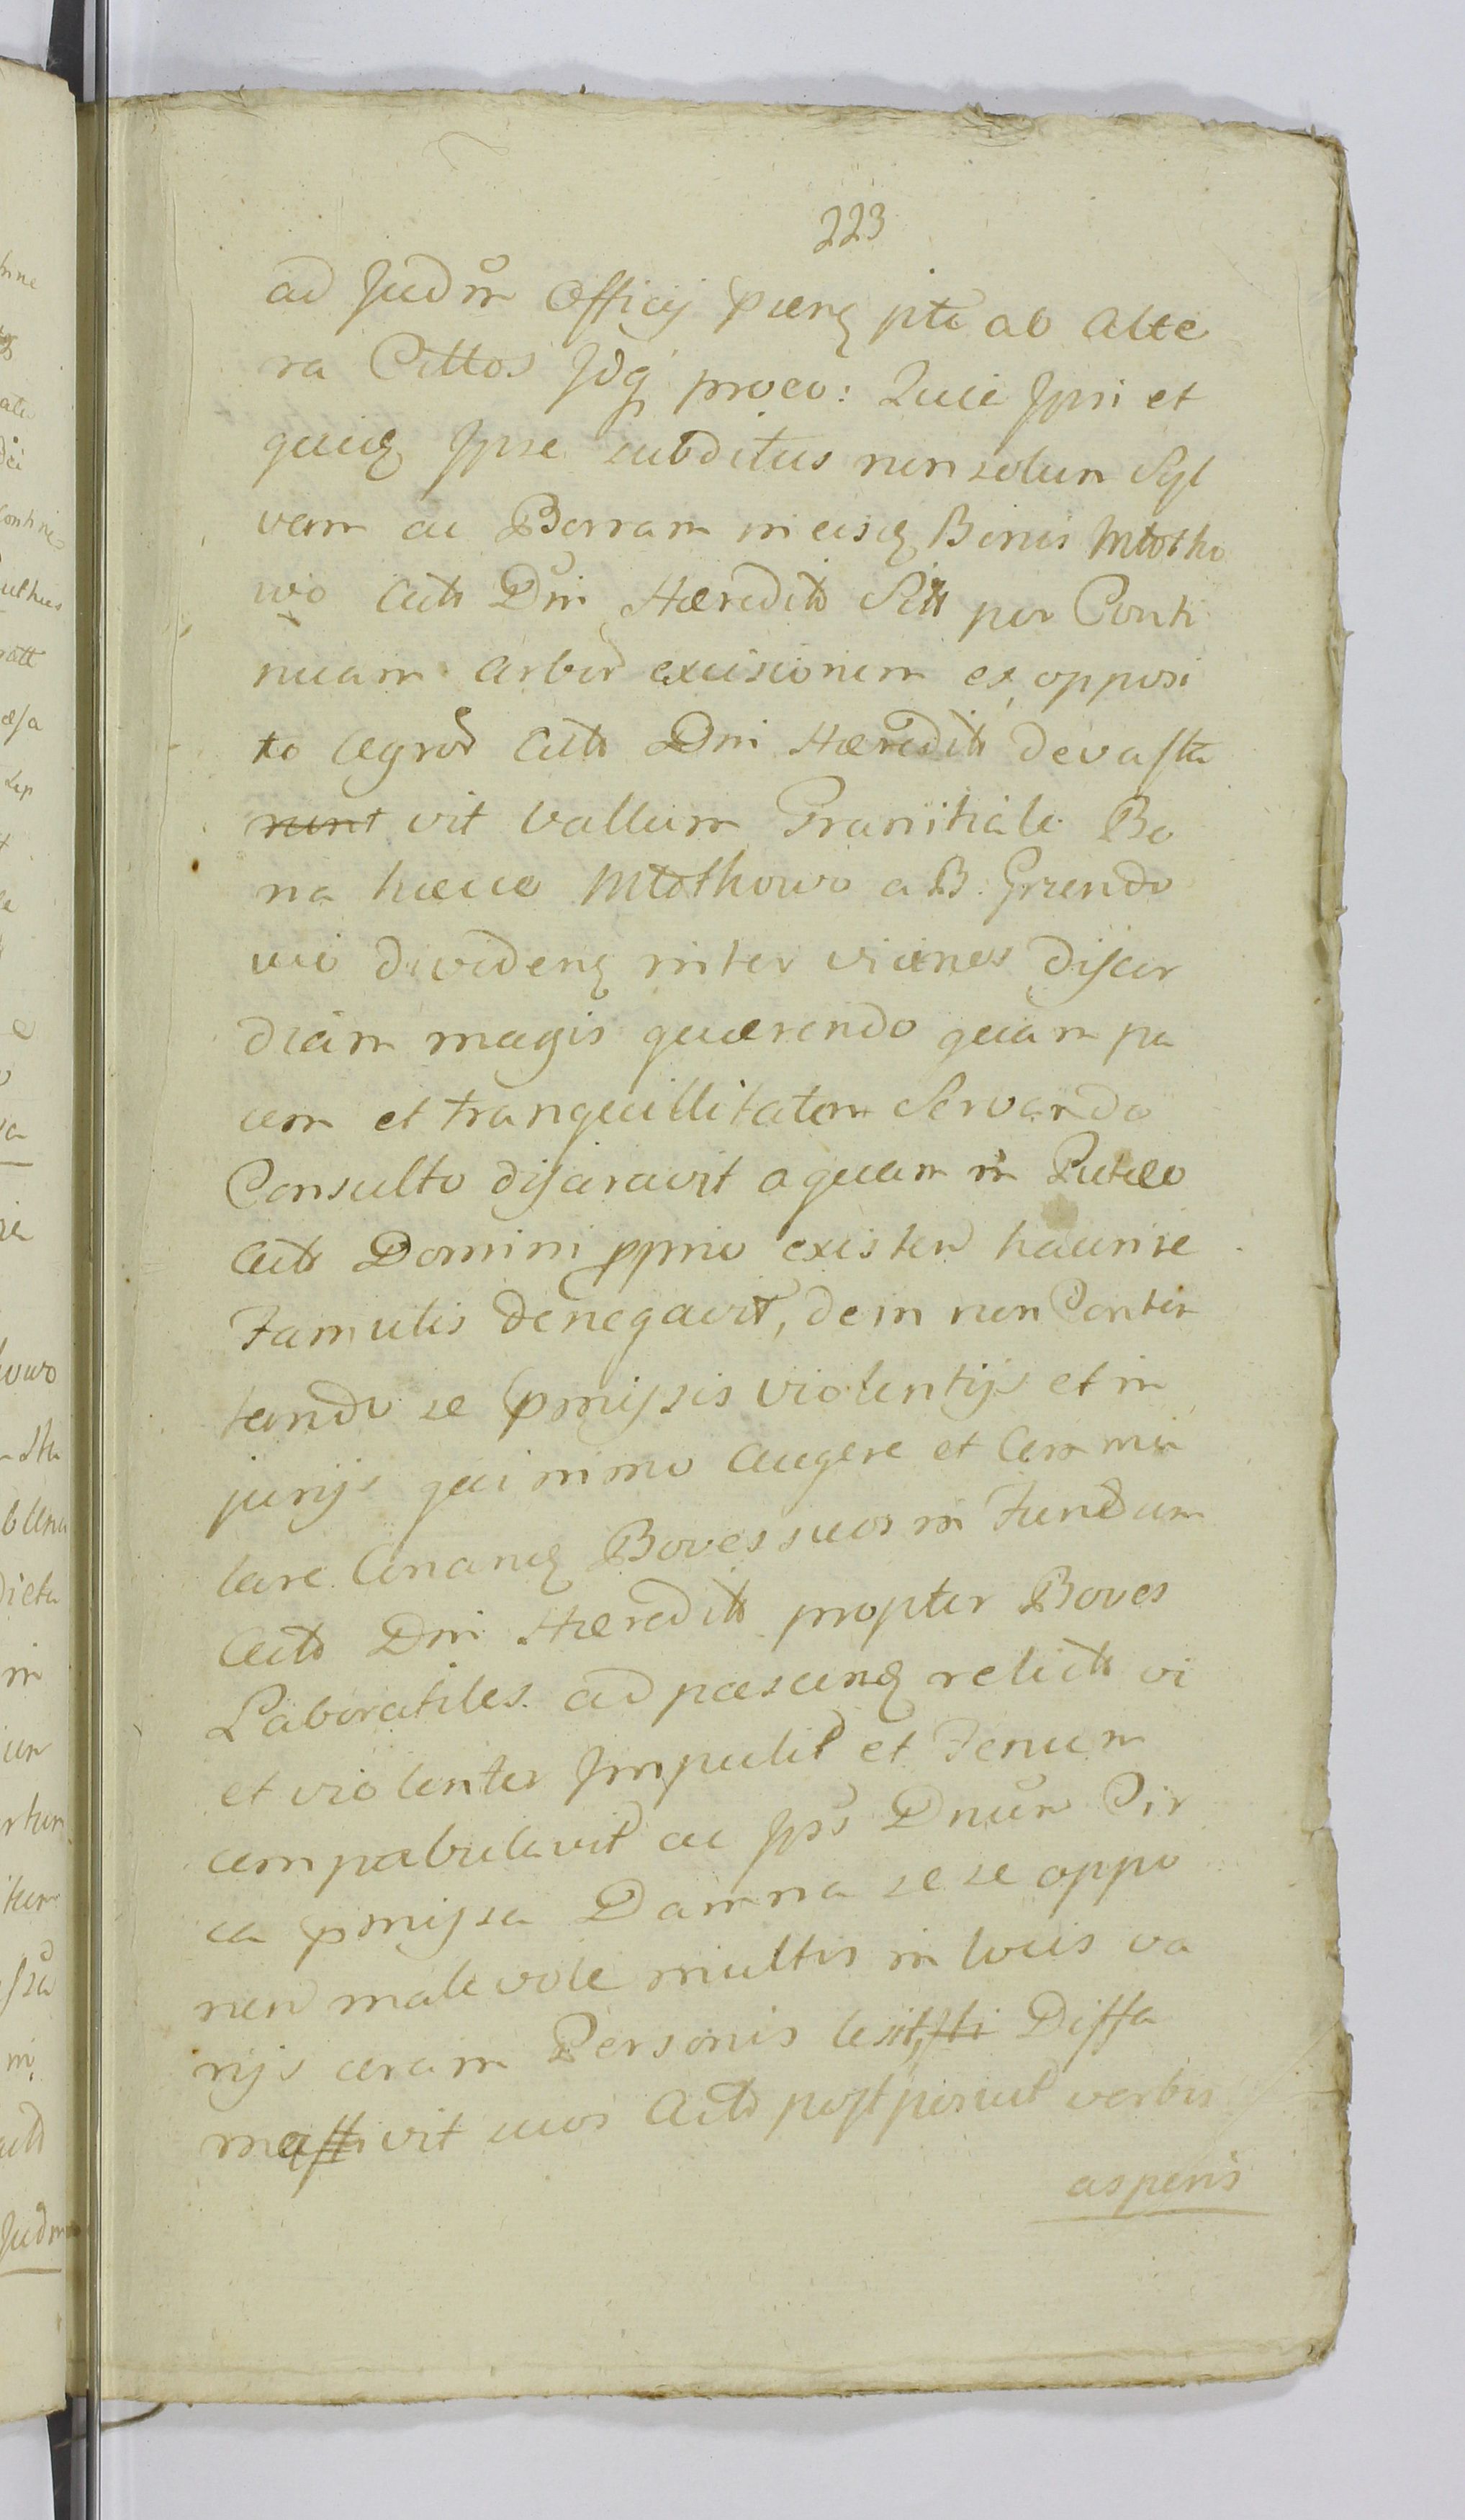 223
ad Judm Officij pten ab Alte
ra Cittos Idq proeo: Quia Ipri et
quiq Ipse subditus non solum Syl
vam ac Borram in eisq Bonis Młotko
wo Actt Dni Hæreditt Sitt per Conti
nuam Arbor excisionem ex opposi
to Agror Actt Dni Hæreditt devasta
runt vit Vallum Granitiale Bo
na hæcce Młotkowo a B. Grzendo
wie dividenq inter vicinos discor
diam magis quærendo quam pa
cem et tranquillitatem Servando
Consulto disaravit aquam in Puteo
Actt Domini pprio existen haurire
Famulis denegavit, dein non Conten
tando se pmissis violentijs et in
jurijs qui nimo Augere et Accumu
lare Conanq Boves suos in Fundum
Actt Dni Hæreditt propter Boves
Laboratiles ad pascenq relictt vi
et violenter Impulit et Fenum
compabulavit ac Ips Dnum Cir
ca pmissa Damna se se oppo
nen malevole multis in locis va
rijs coram Personis lesit, Diffa
mavit suos Actt postposuit verbis
asperis